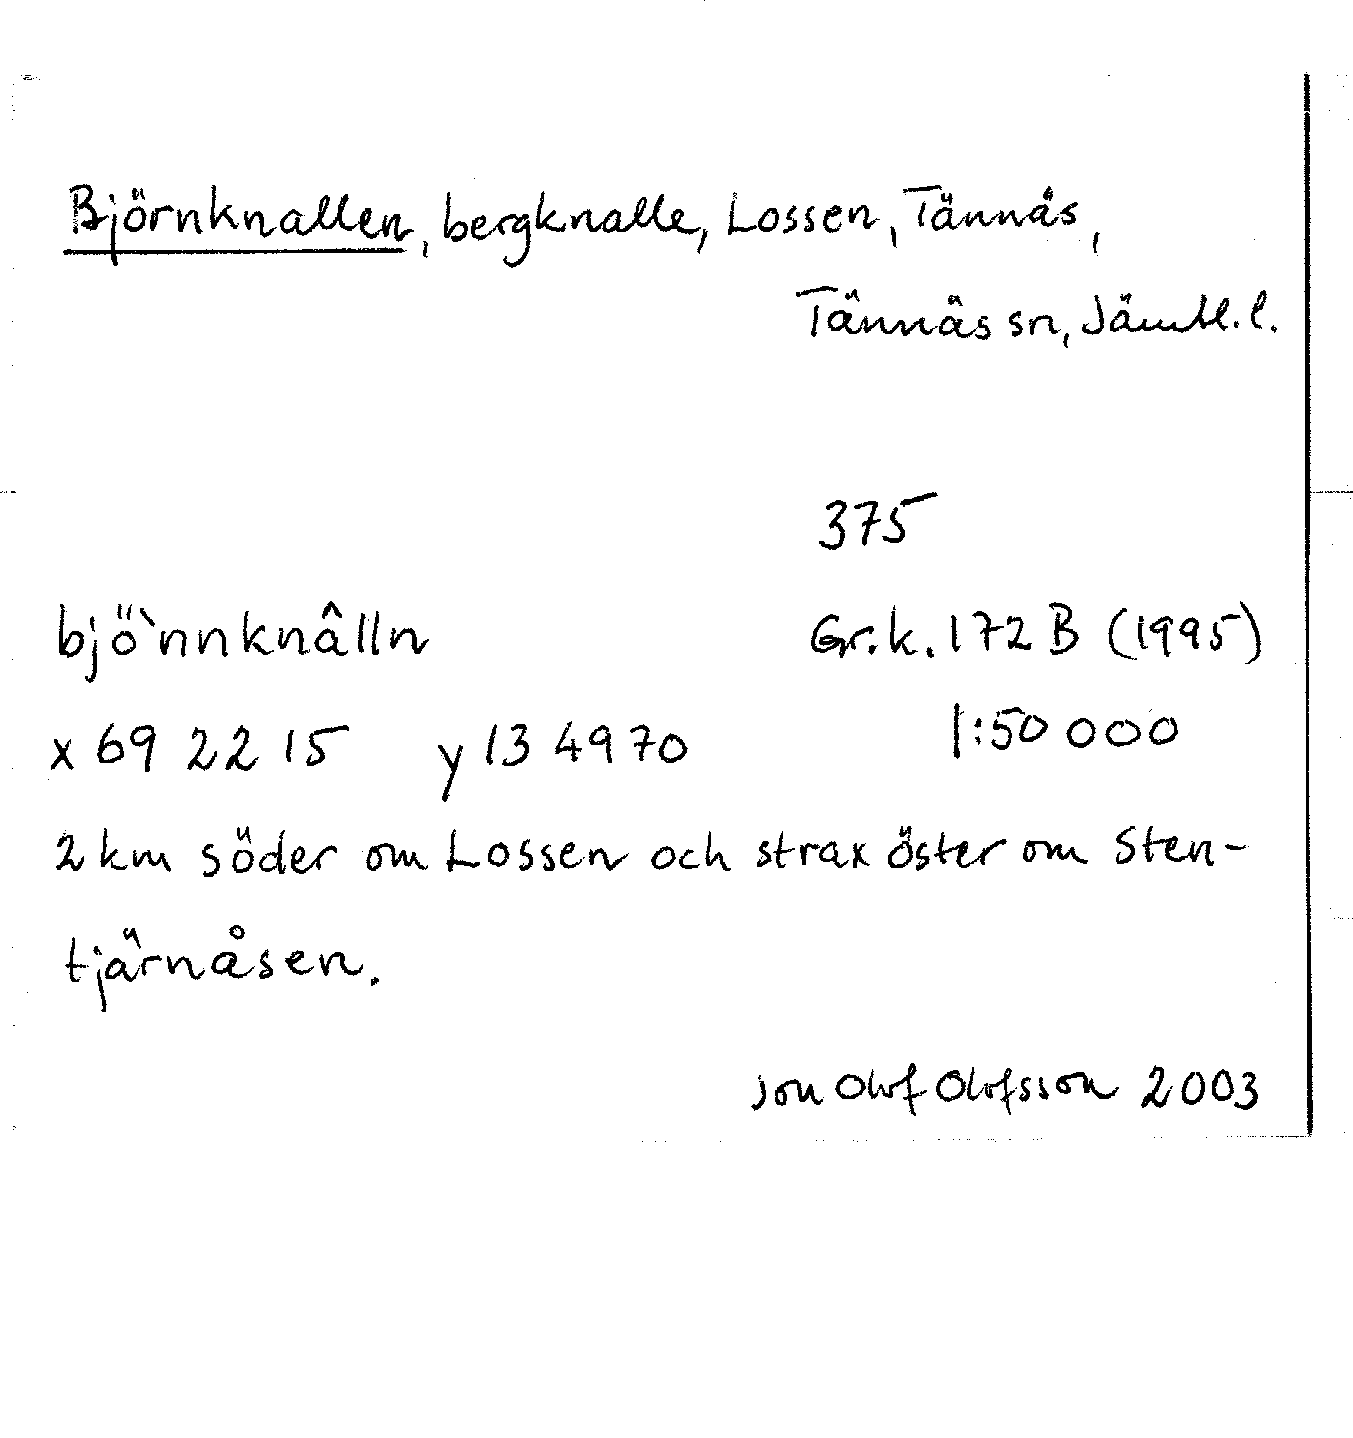 Björnknallen, bergknalle, Lossen, Tännäs,
Tännäs sn, Jämtl. l.
375
bjö`nnknâlln Gr.k. 172 B (1995)
x 69 22 15 y 13 4970 1:50 000
2 km söder om Lossen och strax öster om Sten-
tjärnåsen.
Jon Olof Olofsson 2003